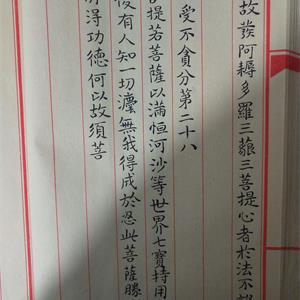 故發阿耨多羅三藐三菩提心者於法不說
受不貪分第二十八
菩提若菩薩以滿恒河沙等世界七寶持用
復有人知一切法無我得成於忍此菩薩勝
所得功德何以故須菩